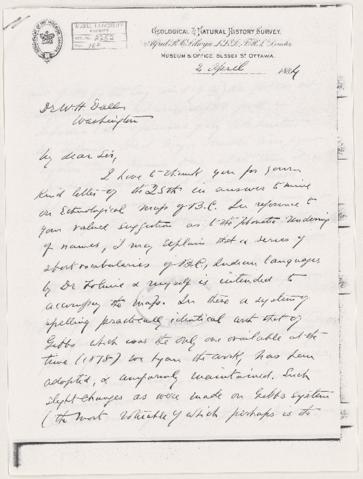 GEOLOGICAL & NATURAL HISTORY SURVEY.
Alfred R. C. Selwyn L.L.D., F.R.S., Director
MUSEUM & OFFICE, SUSSEX ST. OTTAWA.
2 April 1884
Dr W H Dall
Washington
My dear Sir,
I have to thank you for your
kind letter of the 25th in answer to mine
on Ethnological map of B.C. In reference to
your valued suggestion as to the phonetic rendering
of names, I may explain that a series of
short vocabularies of B.C. Indian languages
by Dr Tolmie & myself is intended to
accompany the map. In these a system of
spelling practically identical with that of
Gibbs which was the only one available at the
time (1875) we began the work, has been
adopted, & uniformly maintained. Such
slight changes as were made on Gibbs system
(the most valuable of which perhaps is the